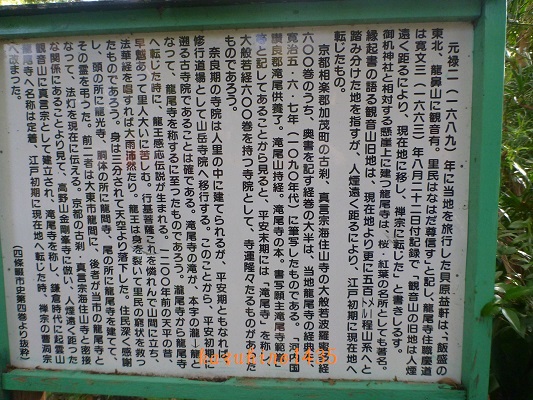 元禄二（一六八九）年に当地を旅行した貝原益軒は、「飯盛の
東北、龍鼻山に観音有。里民はなはだ尊信す」と記し、龍尾寺住職慶道
は寛文三（一六六三）年八月二十二日付記録で、「観音山の旧地は人煙
遠く距るにより、現在地に移し、禅宗に転じた」と書きしるす。
御机神社と相対する懸崖上に建つ龍尾寺は、桜・紅葉の名所としても著名。
縁起書の語る観音山旧地は、現在地より更に五百㍍程山系へと
踏み分けた地を指すが、人煙遠く距るにより、江戸初期に現在地へ
転じたもの。
京都相楽郡加茂町の古刹、真言宗海住山寺の大般若波羅蜜多経
六〇〇巻のうち、奥書を記す経巻の大半は、当地龍尾寺の経典を、
寛治五・六・七年（一〇九〇年代）に筆写したものである。「河内国
讃良郡滝尾供養了。滝尾山持経。滝尾寺の本。書写願主滝尾寺範
慶と記してあることから見ると、平安末期には「滝尾寺」を称し、
大般若経六〇〇巻を持つ寺院として、寺運隆々たるものがあった
ものであろう。
奈良期の寺院は人里の中に建てられるが、平安期ともなれば、
修行道場として山岳寺院へ移行する。このことから、平安初期に
遡る古寺院であることは確である。滝尾寺の滝が、本字の瀧→龍と
なって、龍尾寺を称するに至ったものであろう。瀧尾寺から龍尾寺
へ転じた時に、龍王感応伝説が生まれる。一二〇〇年前の天平の昔、
早魃あって里人大いに苦しむ。行基菩薩これを憐れんで山間に立ち、
法華経を唱すれば大雨沛然たり。龍王は身を裂いて里民の窮状を救っ
たものであろう。身は三分されて天空より落下した。住民深く感謝
し、頭の所に龍光寺、胴体の所に龍間寺、尾の所に龍尾寺を建てて、
その霊を弔った。前二者は大東市龍間に、後者が当市の龍尾寺と
なって、法灯を現在に伝える。京都の古刹・真言宗海住山寺と密接
な関係にあることより見て、高野山金剛峯寺に倣い、人煙遠く距った
観音山に真言宗として建立され、滝尾寺を称し、鎌倉時代に起雲山
龍尾寺へ名称は定着、江戸初期に現在地へ転じた時、禅宗の曹洞宗
へ改まった。
（四條畷市史第四巻より抜粋）